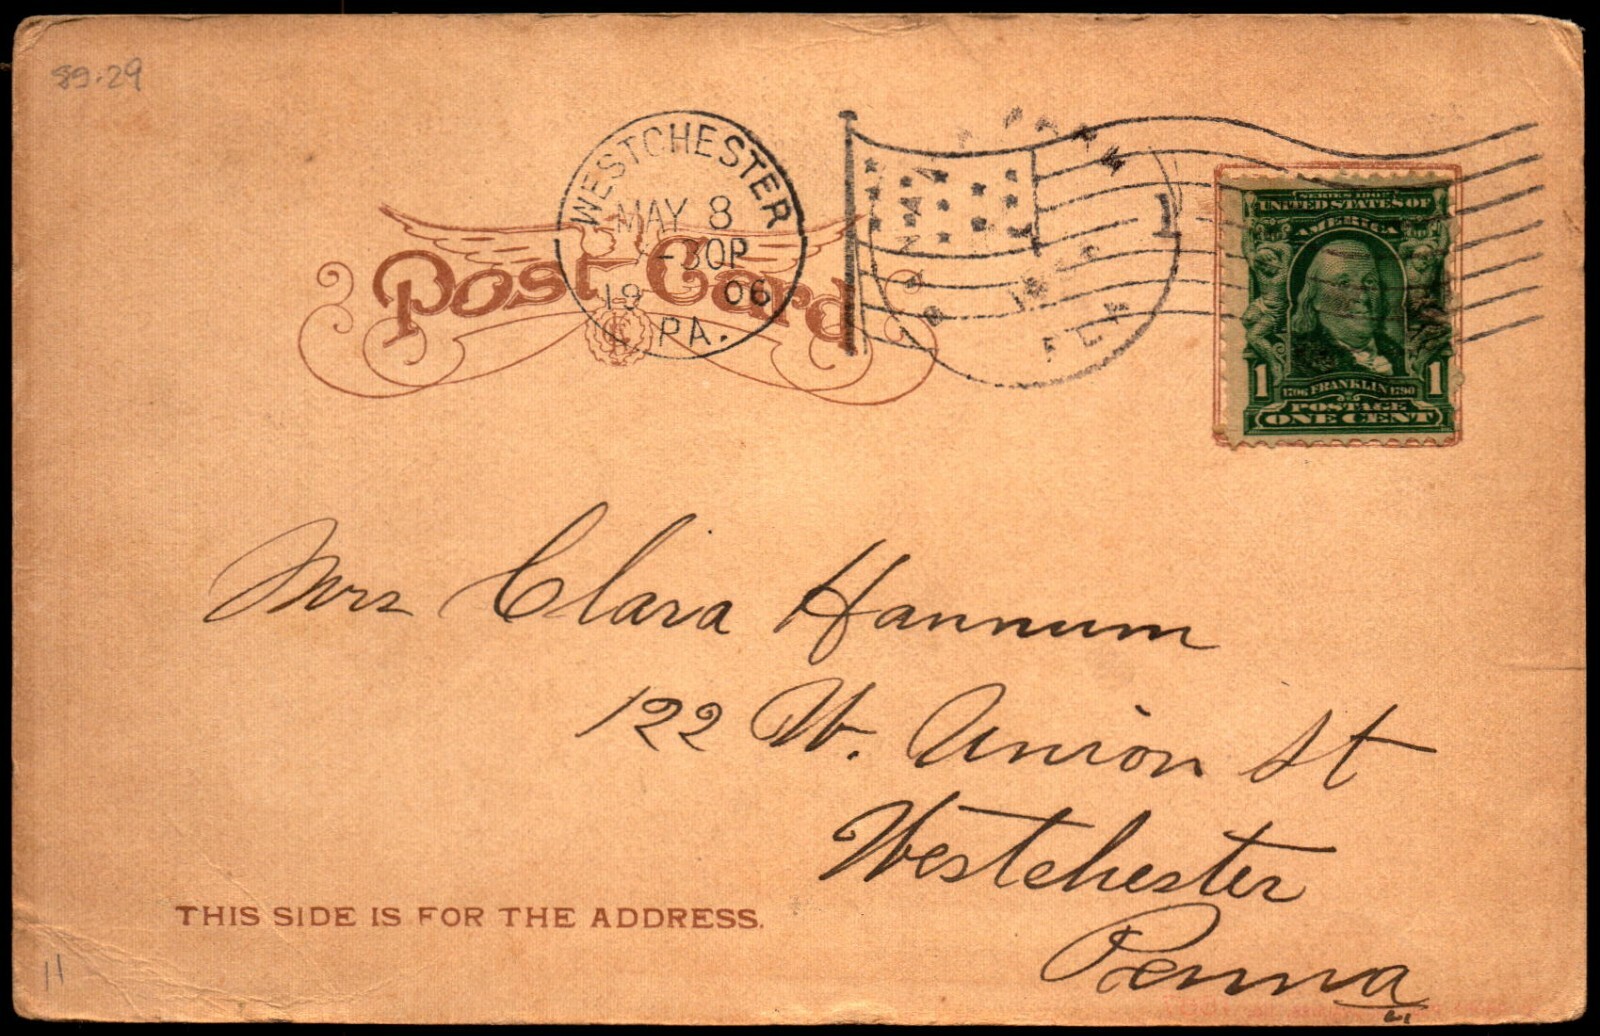 89.29
WESTCHESTER
MAY 8
-30P
19 06
PA.
Post Card
1
FLA
UNITED STATES OF
AMERICA
1 1
1706 FRANKLIN 1790
POSTAGE
ONE CENT
Mrs Clara Hannum
122 W. Union St
Westchester
Penna
THIS SIDE IS FOR THE ADDRESS.
11